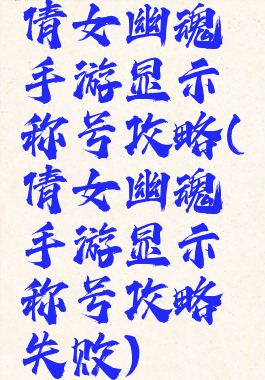 倩女幽魂
手游显示
称号攻略(
倩女幽魂
手游显示
称号攻略
失败)